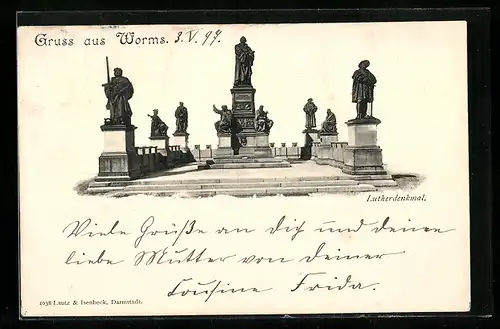 Gruss aus Worms. 3.V.97.
Lutherdenkmal.
Viele Grüße an Dich und deine
liebe Mutter von deiner
Cousine Frida.
1038 Lautz & Isenbeck, Darmstadt.